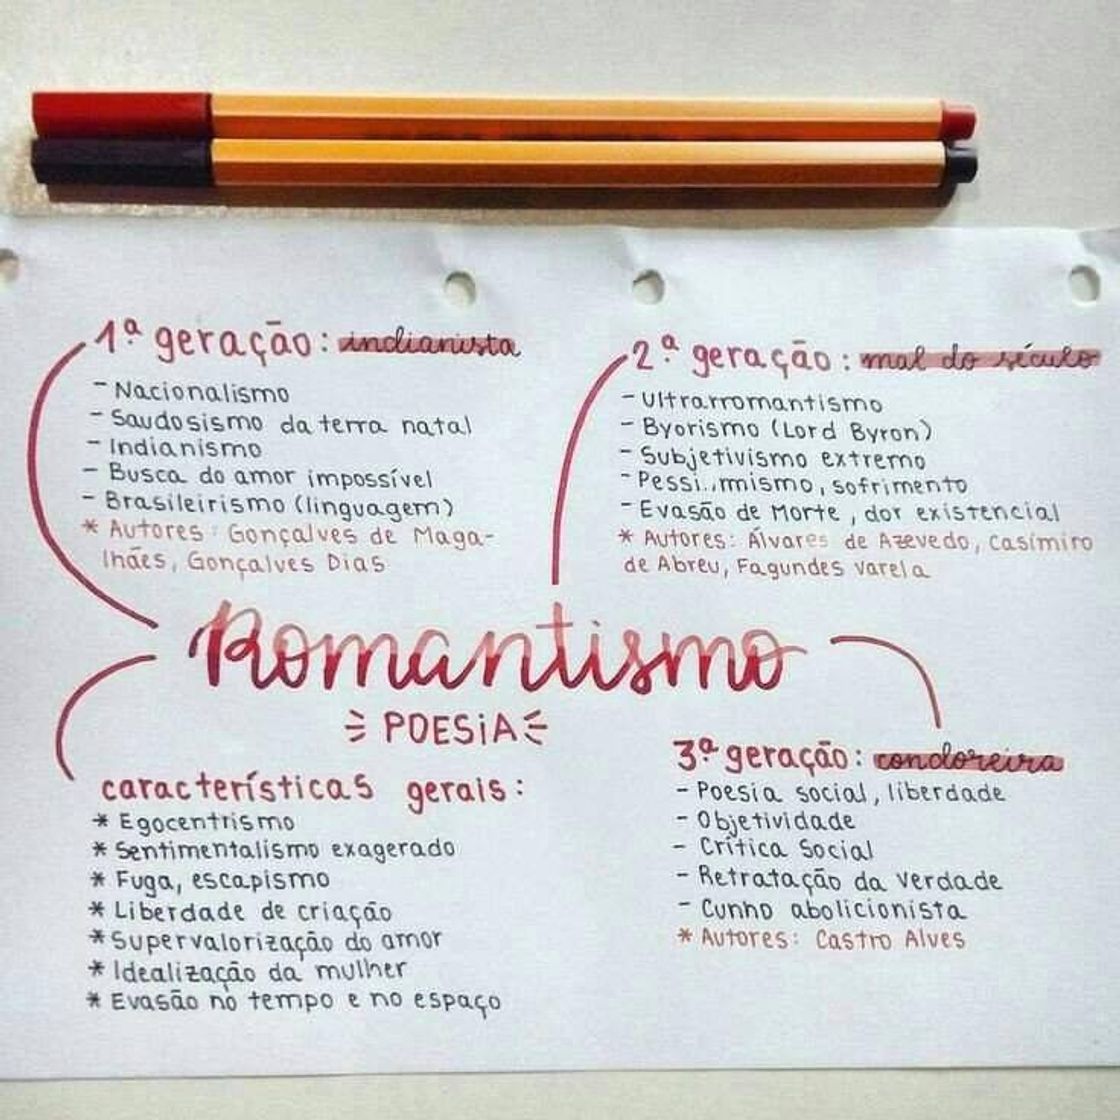 1ª geração: indianista
- Nacionalismo
- Saudosismo da terra natal
- Indianismo
- Busca do amor impossível
- Brasileirismo (linguagem)
* Autores: Gonçalves de Maga-
lhães, Gonçalves Dias
2ª geração: mal do século
- Ultrarromantismo
- Byorismo (Lord Byron)
- Subjetivismo extremo
- Pessi..mismo, sofrimento
- Evasão de Morte, dor existencial
* Autores: Álvares de Azevedo, Casímiro
de Abreu, Fagundes varela
Romantismo
POESiA
características gerais:
* Egocentrismo
* Sentimentalismo exagerado
* Fuga, escapismo
* Liberdade de criação
* Supervalorização do amor
* Idealização da mulher
* Evasão no tempo e no espaço
3ª geração: condoreira
- Poesia social, liberdade
- Objetividade
- Crítica Social
- Retratação da verdade
- Cunho abolicionista
* Autores: Castro Alves